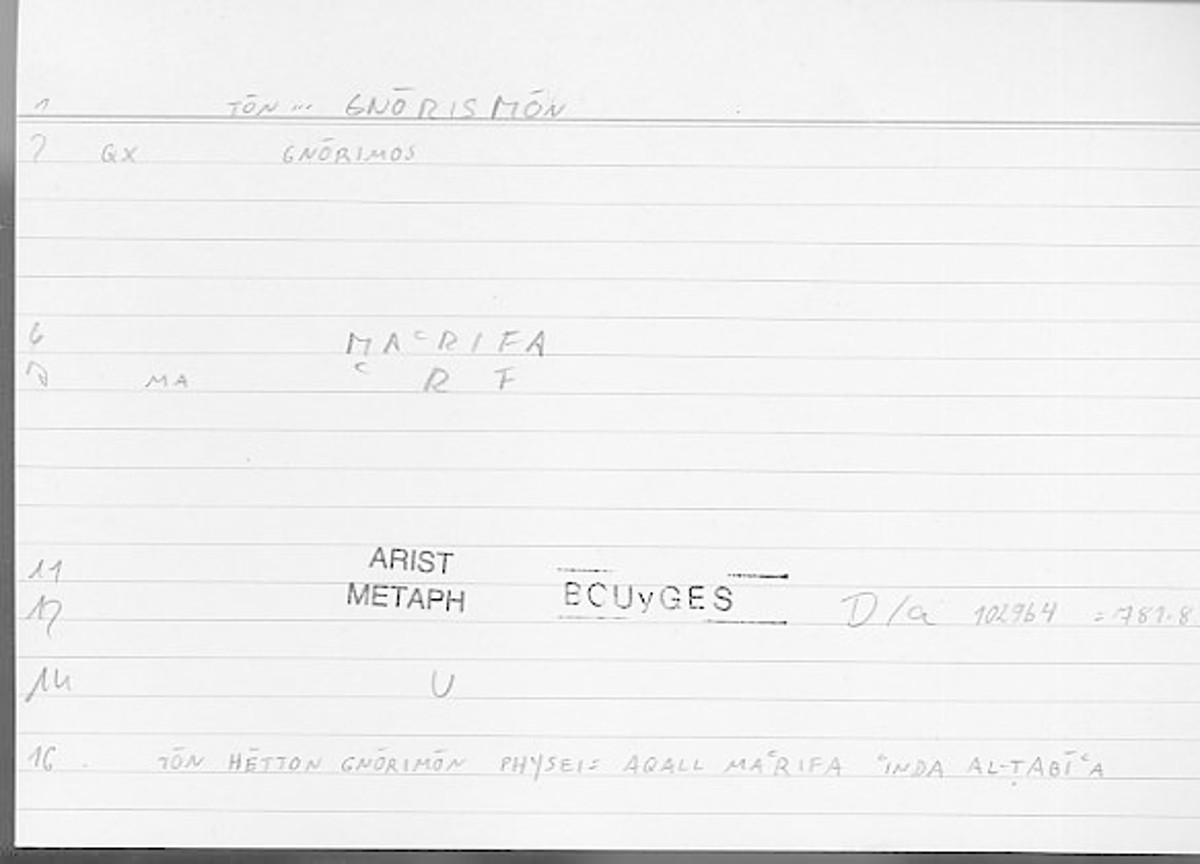 1 TŌN ... GNŌRISMŌN
2 QX GNŌRIMOS
6 MAʿRIFA
7 MA ʿ R F
11 ARIST
12 METAPH BCUyGES D/a 102964 = 781.8
14 U
16 TŌN HĒTTON GNŌRIMŌN PHYSEI= AQALL MAʿRIFA ʿINDA AL-ṬABĪʿA